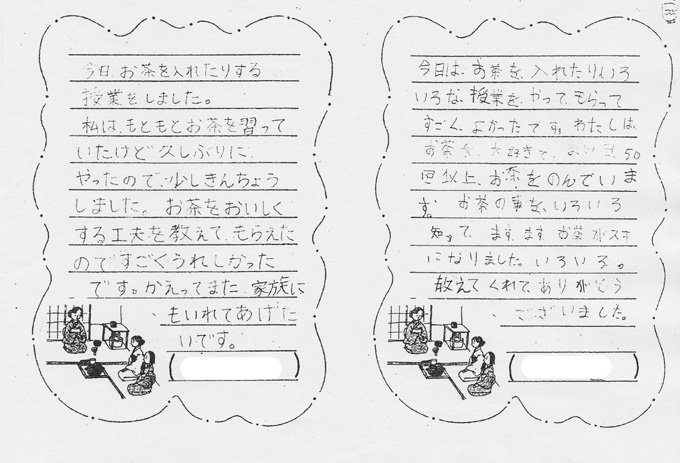 今日、お茶を入れたりする
授業をしました。
私は、もともとお茶を習って
いたけど久しぶりに、
やったので、少しきんちょう
しました。お茶をおいしく
する工夫を教えて、もらえた
のですごくうれしかった
です。かえってまた、家族に
もいれてあげた
いです。
今日は、お茶を、入れたりいろ
いろな、授業を、やって、もらって
すごく、よかったです。わたしは、
お茶が、大好きで、 50
回以上、お茶をのんでいま
す。お茶の事を、いろいろ
知って、ます、ます、お茶がスキ
になりました。いろいろ。
教えてくれて、ありがとう
ございました。